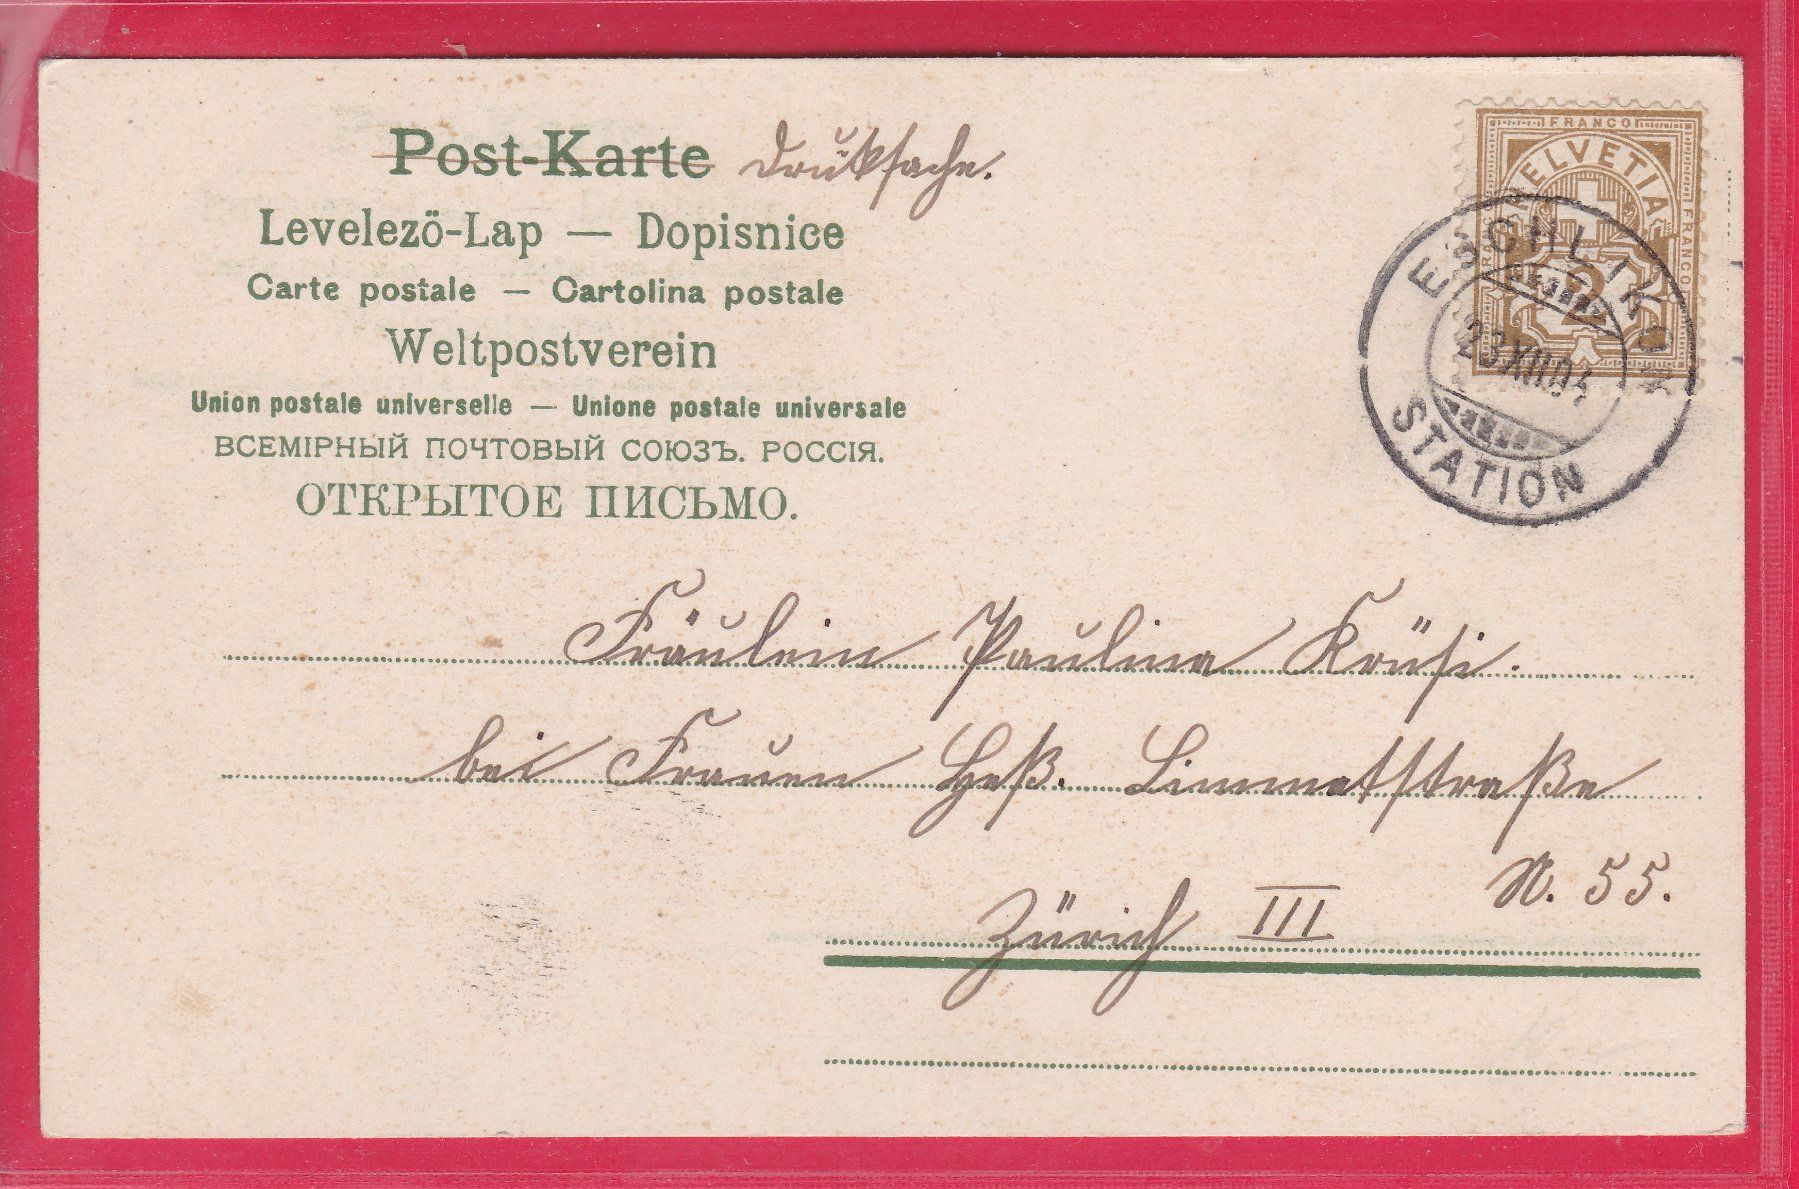 Post-Karte Druksache.
Levelező-Lap — Dopisnice
Carte postale — Cartolina postale
Weltpostverein
Union postale universelle — Unione postale universale
ВСЕМІРНЫЙ ПОЧТОВЫЙ СОЮЗЪ. РОССІЯ.
ОТКРЫТОЕ ПИСЬМО.
FRANCO
HELVETIA
FRANCO
FRANCO
2
ESCHLIKON
23.XII.04
STATION
Fräulein Paulina Krüsi.
bei Frauen Heß. Limmatstraße
N. 55.
Zürich III